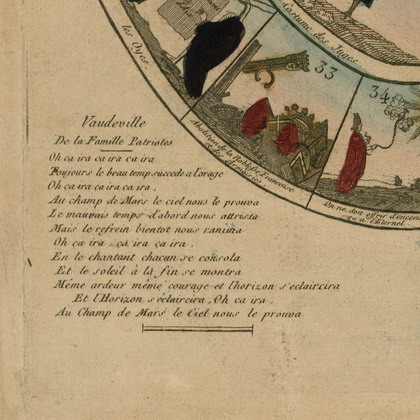 les Oyes.
Costume des Juges.
33
34
Abolition de la Noblesse Francoise
On ne doit offrir d'encens
qu'a l'Eternel
Vaudeville
De la Famille Patriotes
Oh ca ira ca ira ca ira
Toujours le beau temp succede a l'orage
Oh ca ira ca ira ca ira.
Au champ de Mars le ciel nous le prouva
Le mauvais temps d'abord nous attrista
Mais le refrein bientot nous ranima
Oh ca ira ça ira ça ira.
En le chantant chacun se consola
Et le soleil à la fin se montra
Même ardeur même courage et l'horizon s'eclaircira
Et l'Horizon s'éclaircira, Oh ca ira.
Au Champ de Mars le Ciel nous le prouva